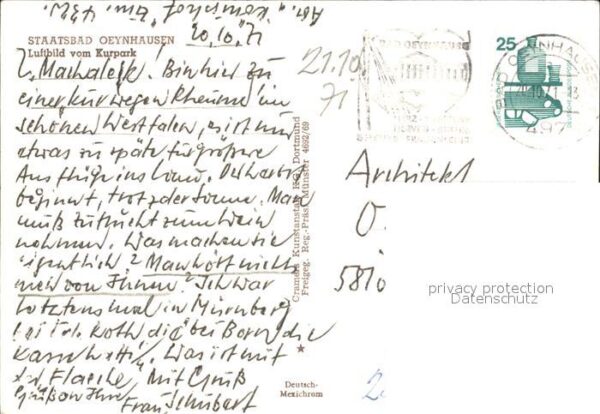 STAATSBAD OEYNHAUSEN
Luftbild vom Kurpark
20.10.71
Bin hier zu
einer Kur wegen Rheuma im
schönen Westfalen, es ist nur
etwas zu spät für größere
Ausflüge ins Land. Der Herbst
beginnt, trotz der Sonne. Man
muß Zuflucht zum Wein
nehmen. Was machen Sie
eigentlich? Man hört nichts
mehr von Ihnen. Ich war
letztesmal in Nürnberg
bei Frl. Roth die bei Born die
Kasse hatte. Was ist mit
Flasche, Mit Gruß
Grüßen Ihre
Frau Schubert
21.10
71
Cramers Kunstanstalt KG, Dortmund
Freigeg. Reg.-Präs. Münster 4692/69
Deutsch-
Mexichrom
BAD OEYNHAUSEN
25
Architekt
O.
5810
privacy protection
Datenschutz
2.